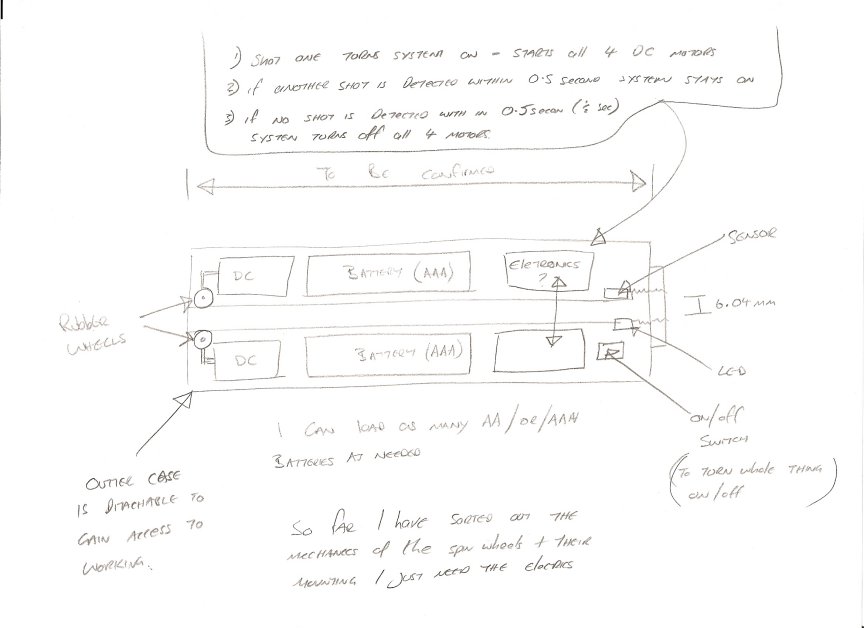 1) SHOT ONE TURNS SYSTEM ON - STARTS all 4 DC MOTORS
2) if ANOTHER SHOT IS DETECTED WITHIN 0.5 second SYSTEM STAYS ON
3) if NO SHOT IS DETECTED WITH IN 0.5 secon (½ sec)
SYSTEM TURNS off all 4 MOTORS
TO BE CONFIRMED
SENSOR
DC
BATTERY (AAA)
ELETRONICS
?
6.04 mm
RUBBER
WHEELS
DC
BATTERY (AAA)
LED
ON/off
SWITCH
(TO TURN whole THING
ON/off)
I CAN LOAD as MANY AA/OR/AAA
BATTERIES AS NEEDED
OUTTER CASE
IS DITACHABLE TO
GAIN ACCESS TO
WORKING.
SO FAR I HAVE SORTED OUT THE
MECHANICS of the spin wheels + THEIR
MOUNTING I JUST NEED THE